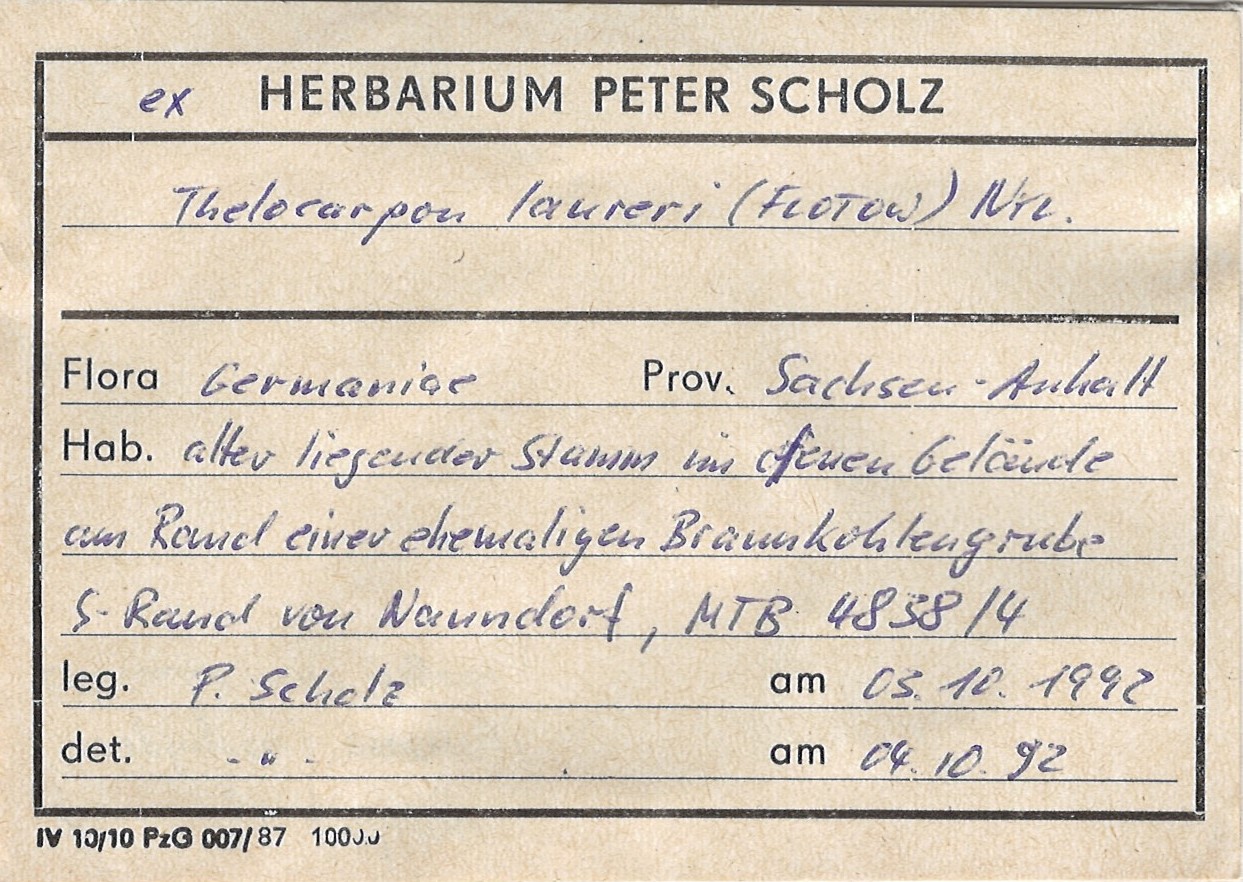 ex HERBARIUM PETER SCHOLZ
Thelocarpon laureri (FLOTOW) NYL.
Flora Germaniae Prov. Sachsen-Anhalt
Hab. alter liegender Stamm im offenen Gelände
am Rand einer ehemaligen Braunkohlengrube
S-Rand von Naundorf, MTB 4838/4
leg. P. Scholz am 03.10.1992
det. -"- am 04.10.92
IV 10/10 PzG 007/87